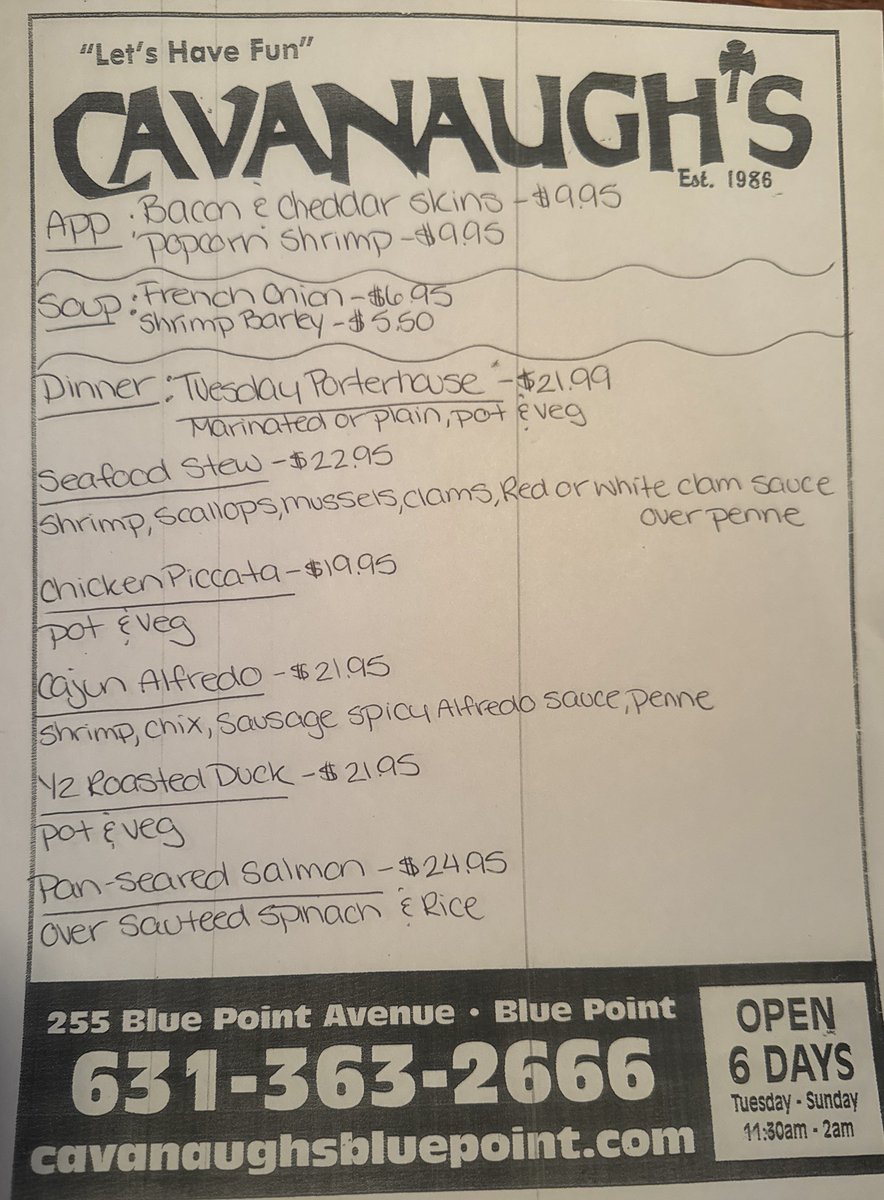 "Let's Have Fun"
CAVANAUGH'S
Est. 1986
App : Bacon & Cheddar Skins - $9.95
"Popcorn" Shrimp - $9.95
Soup : French Onion - $6.95
Shrimp Barley - $5.50
Dinner : "Tuesday Porterhouse" - $21.99
Marinated or plain, pot & veg
Seafood Stew - $22.95
Shrimp, Scallops, mussels, clams, Red or white clam sauce
over penne
Chicken Piccata - $19.95
pot & veg
Cajun Alfredo - $21.95
Shrimp, chix, Sausage spicy Alfredo sauce, penne
1/2 Roasted Duck - $21.95
pot & veg
Pan-seared Salmon - $24.95
over Sauteed Spinach & Rice
255 Blue Point Avenue • Blue Point
631-363-2666
cavanaughsbluepoint.com
OPEN
6 DAYS
Tuesday - Sunday
11:30am - 2am